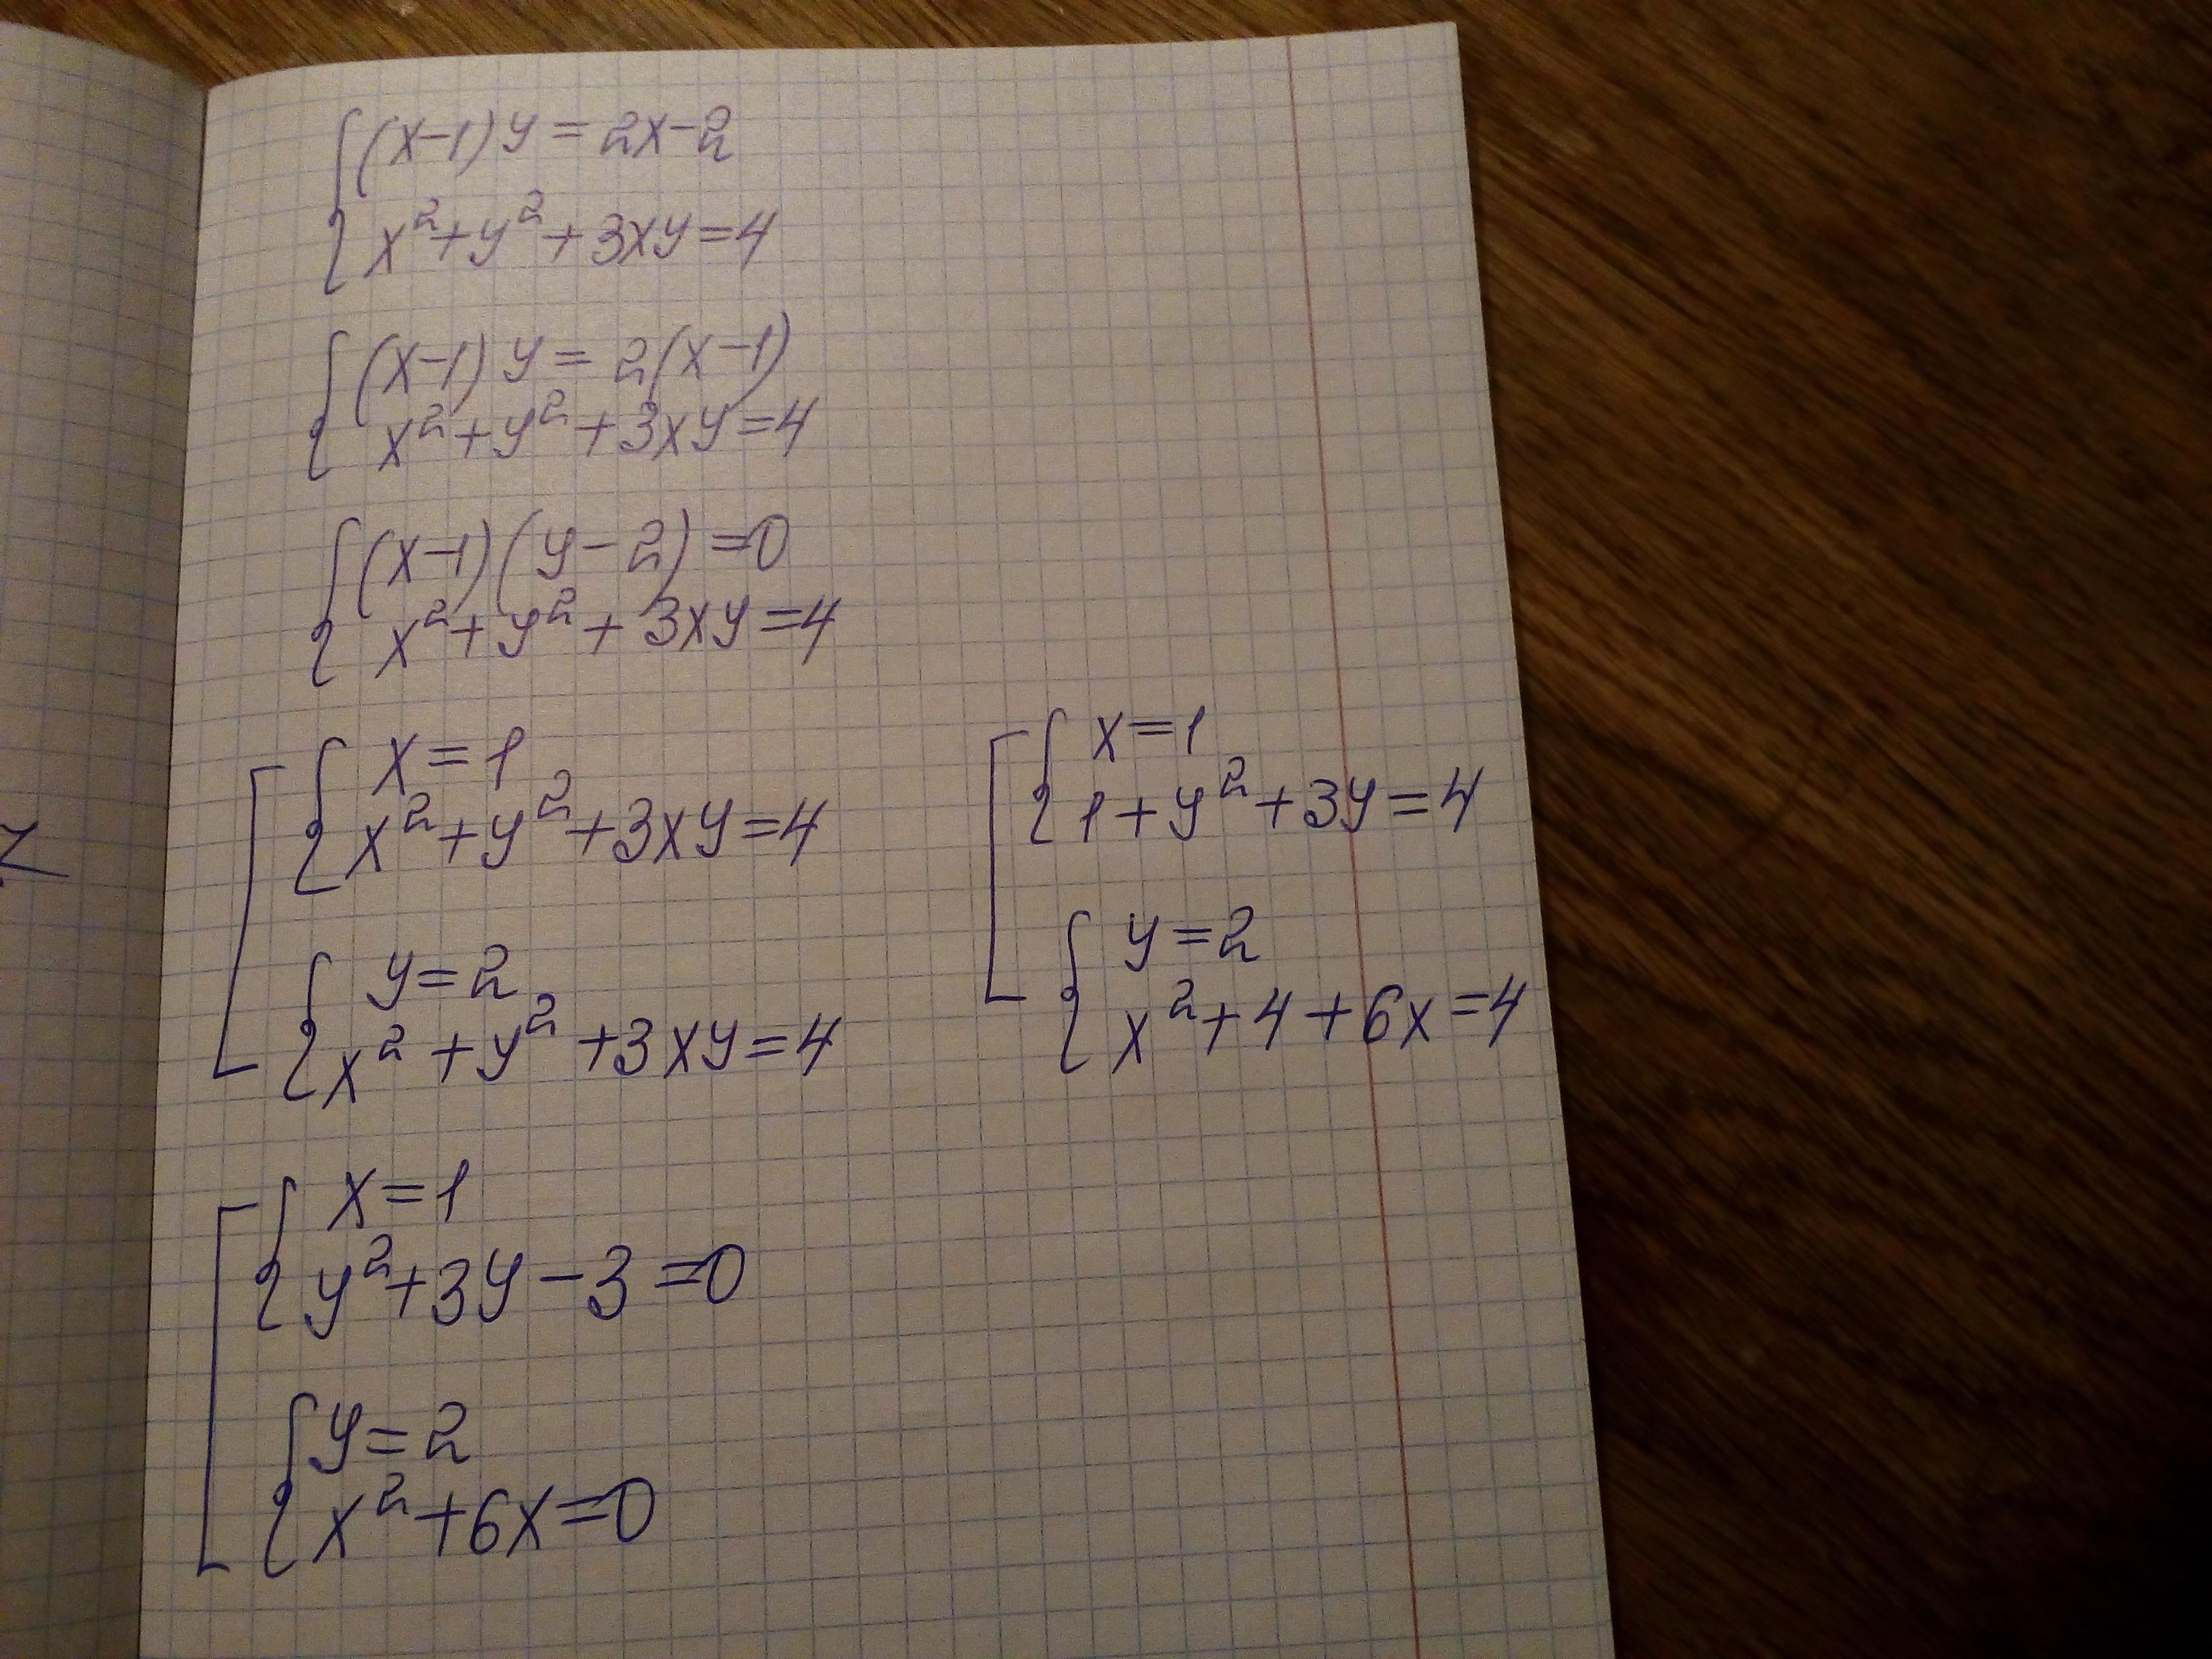 (x-1)y=2x-2
x²+y²+3xy=4
(x-1)y=2(x-1)
x²+y²+3xy=4
(x-1)(y-2)=0
x²+y²+3xy=4
x=1
x²+y²+3xy=4
y=2
x²+y²+3xy=4
x=1
1+y²+3y=4
y=2
x²+4+6x=4
x=1
y²+3y-3=0
y=2
x²+6x=0